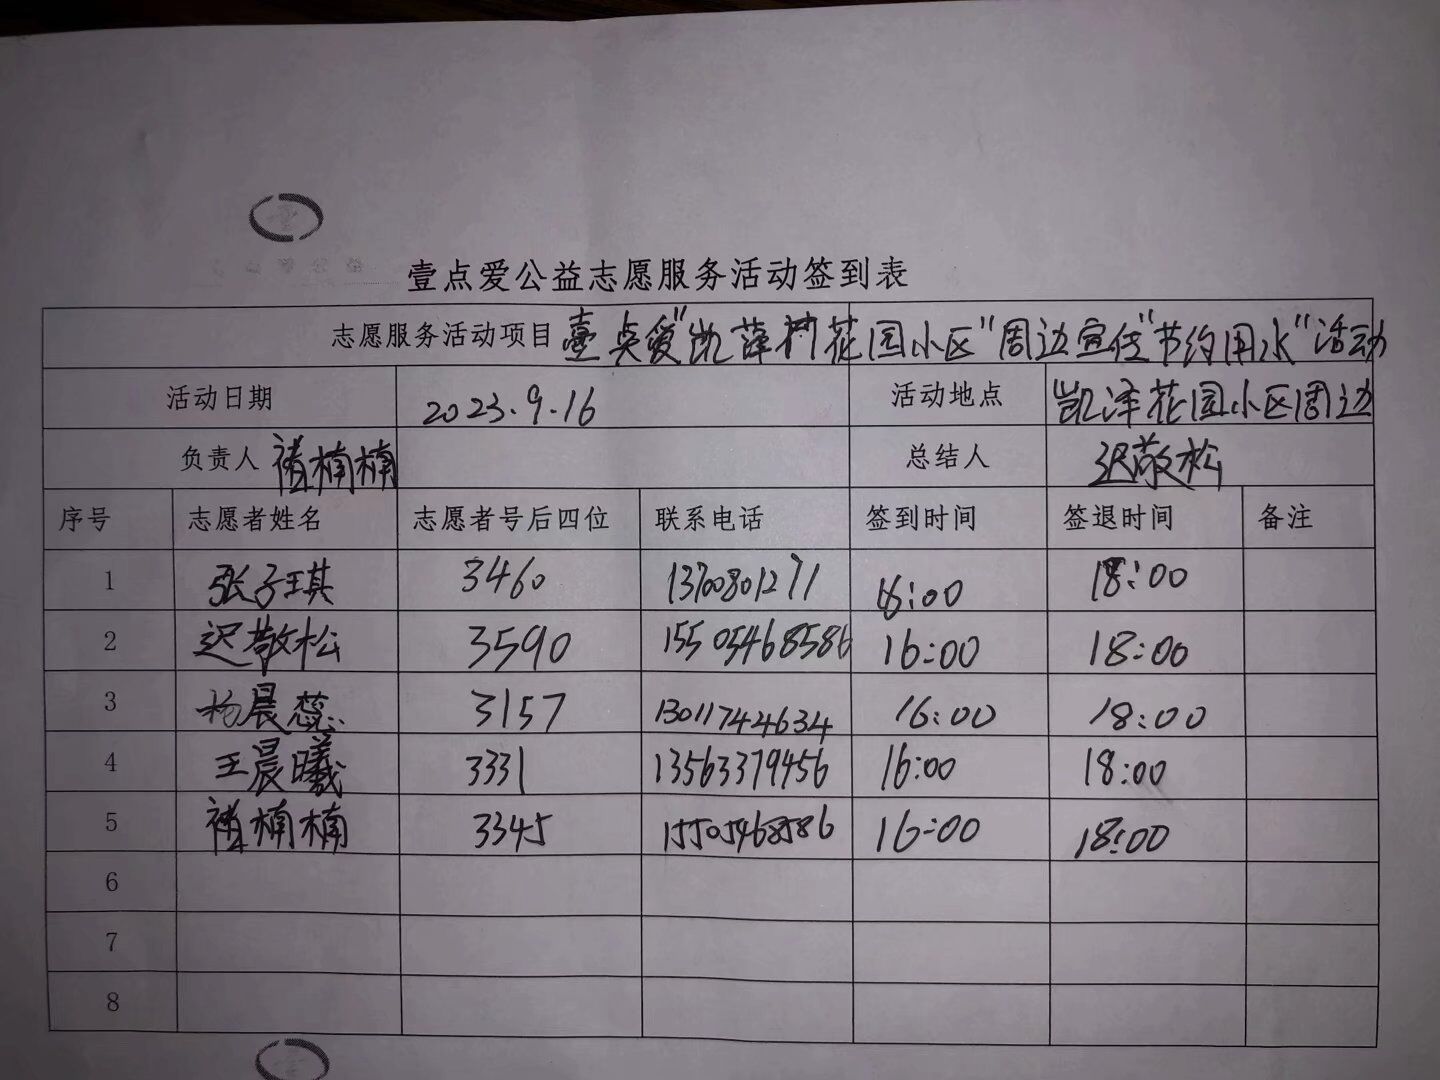 壹点爱公益志愿服务活动签到表
志愿服务活动项目 壹点爱"凯泽花园小区"周边宣传"节约用水"活动
活动日期 2023.9.16 活动地点 凯泽花园小区周边
负责人 褚楠楠 总结人 迟敬松
序号 志愿者姓名 志愿者号后四位 联系电话 签到时间 签退时间 备注
1 张子琪 3460 13700801271 16:00 18:00
2 迟敬松 3590 15505468586 16:00 18:00
3 杨晨蕊 3157 13011744634 16:00 18:00
4 王晨曦 3331 13563379456 16:00 18:00
5 褚楠楠 3345 15505468586 16:00 18:00
6
7
8